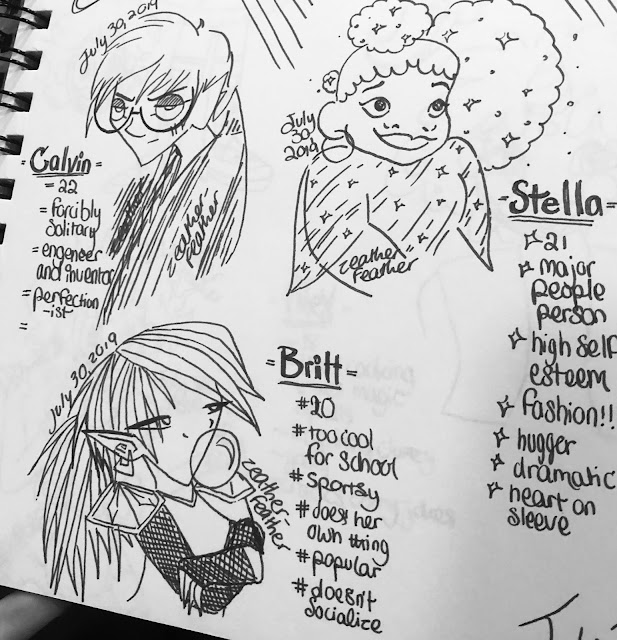 July 30, 2019
-Calvin-
= 22
= forcibly
solitary
= engeneer
and inventor
= perfection
-ist
=
zeather-
feather
July
30,
2019
zeather
feather
-Stella-
21
major
people
person
high self
esteem
fashion!!
hugger
dramatic
heart on
sleeve
July 30, 2019
zeather-
feather
-Britt-
#20
#too cool
for school
#sportsy
#does her
own thing
#popular
#doesn't
socialize